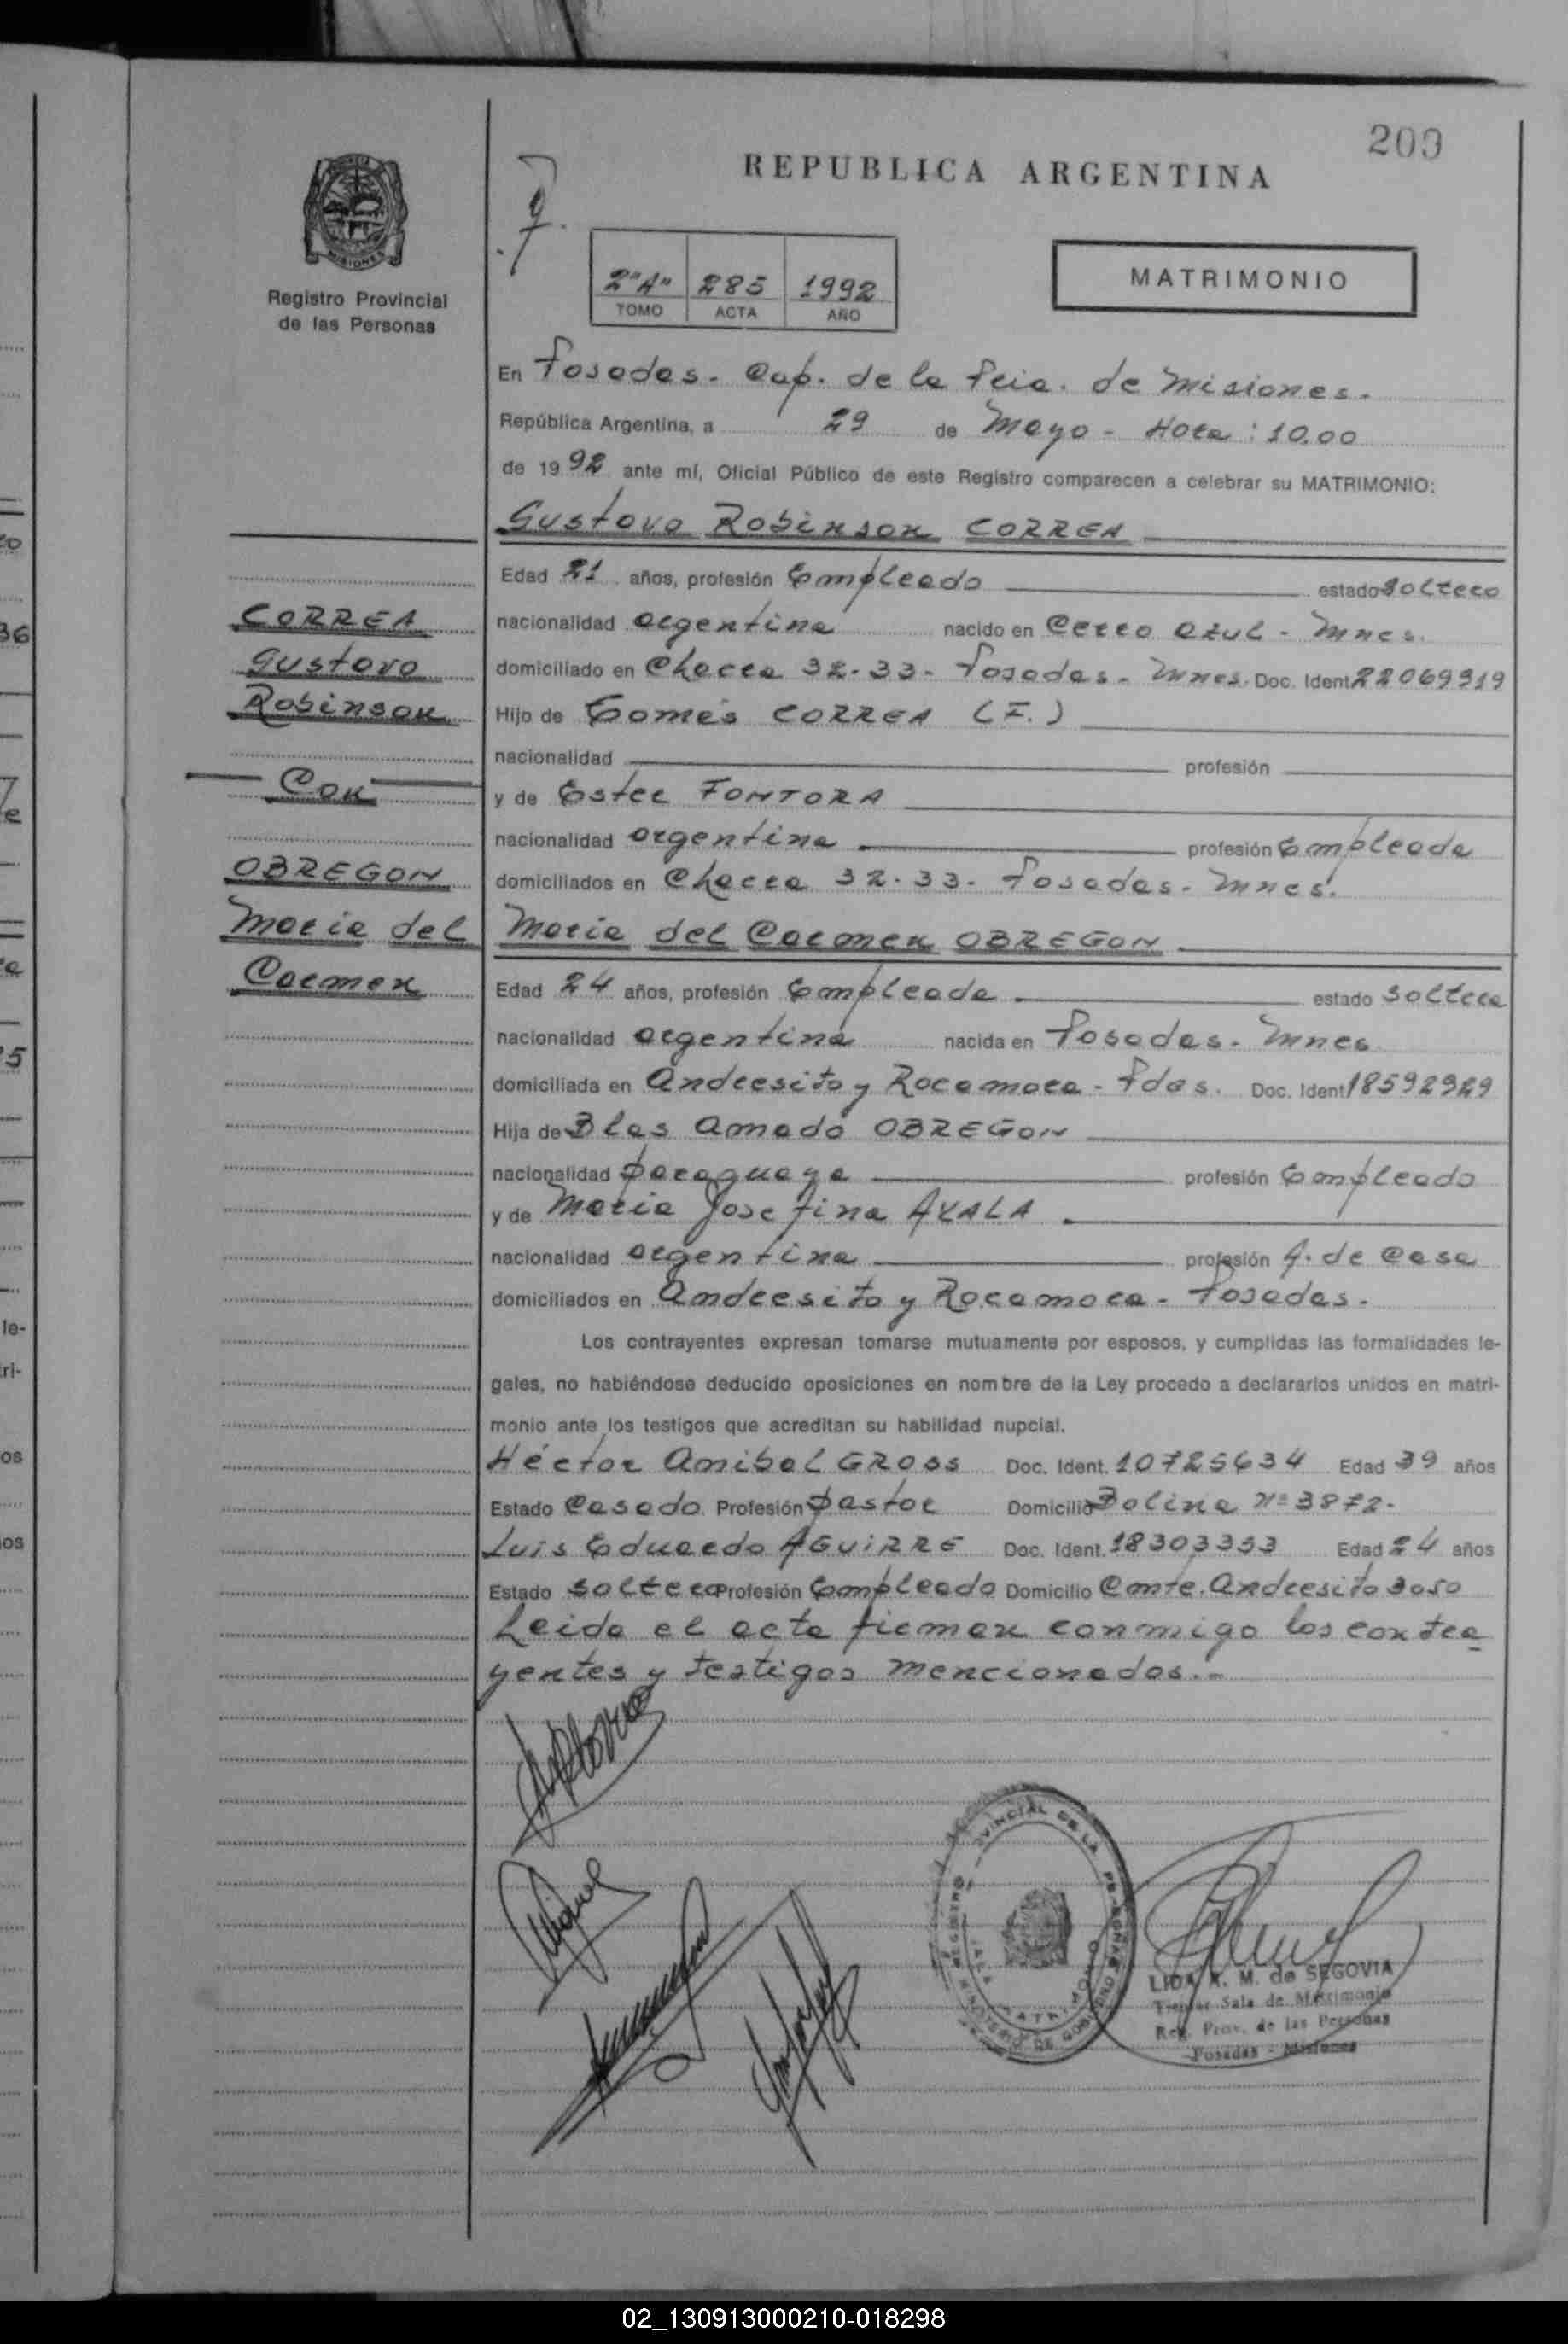 209
REPUBLICA ARGENTINA
MISIONES
Registro Provincial
de las Personas
2"A" 285 1992
TOMO ACTA AÑO
MATRIMONIO
En Posadas. Cap. de la Pcia. de Misiones.
República Argentina, a 29 de Mayo - Hora: 10.00
de 1992 ante mí, Oficial Público de este Registro comparecen a celebrar su MATRIMONIO:
Gustavo Robinson CORREA
Edad 21 años, profesión Empleado estado soltero
nacionalidad argentina nacido en Cerro Azul - Mnes.
domiciliado en Chacra 32-33- Posadas - Mnes. Doc. Ident 22069919
Hijo de CORREA (F.)
nacionalidad profesión
y de Ester FONTORA
nacionalidad argentina profesión Empleada
domiciliados en Chacra 32-33- Posadas - Mnes.
María del Carmen OBREGON
Edad 24 años, profesión Empleada estado soltera
nacionalidad argentina nacida en Posadas - Mnes
domiciliada en Andresito y Rocamora - Pdas. Doc. Ident 18592929
Hija de Blas Amado OBREGON
nacionalidad paraguaya profesión Empleado
y de María Josefina AYALA
nacionalidad argentina profesión A. de Casa
domiciliados en Andresito y Rocamora - Posadas.
Los contrayentes expresan tomarse mutuamente por esposos, y cumplidas las formalidades le-
gales, no habiéndose deducido oposiciones en nombre de la Ley procedo a declararlos unidos en matri-
monio ante los testigos que acreditan su habilidad nupcial.
Héctor Anibal GROSS Doc. Ident. 10725634 Edad 39 años
Estado Casado Profesión pastor Domicilio Nº 3872-
Luis Eduardo AGUIRRE Doc. Ident. 18303353 Edad 24 años
Estado soltero Profesión Empleado Domicilio Cmte. Andresito 3050
Leida el acta firman conmigo los contra
yentes y testigos mencionados.-
CORREA
Gustavo
Robinson
Con
OBREGON
María del
Carmen
LIDA R. M. de SEGOVIA
Titular Sala de Matrimonio
Reg. Prov. de las Personas
Posadas - Misiones
02_130913000210-018298